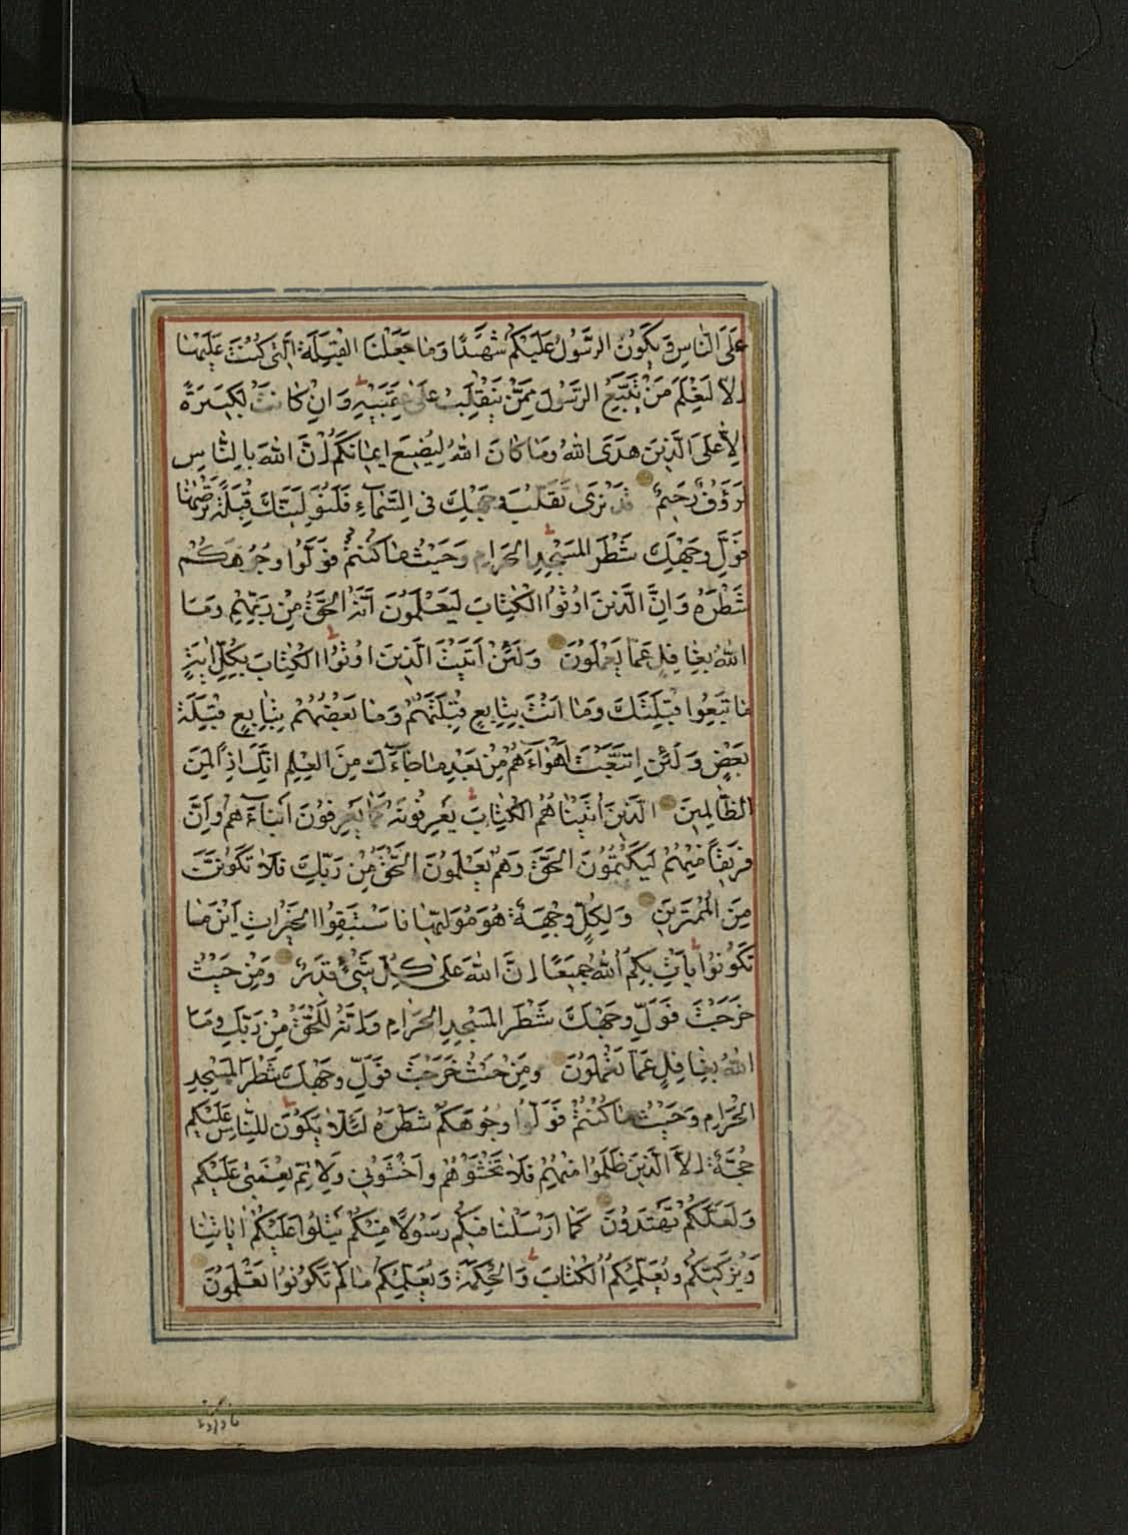 عَلَى النَّاسِ وَيَكُونَ الرَّسُولُ عَلَيْكُمْ شَهِيدًا وَمَا جَعَلْنَا الْقِبْلَةَ الَّتِي كُنْتَ عَلَيْهَا
اِلَّا لِنَعْلَمَ مَنْ يَتَّبِعُ الرَّسُولَ مِمَّنْ يَنْقَلِبُ عَلَى عَقِبَيْهِ وَاِنْ كَانَتْ لَكَبِيرَةً
اِلَّا عَلَى الَّذِينَ هَدَى اللهُ وَمَا كَانَ اللهُ لِيُضِيعَ اِيمَانَكُمْ اِنَّ اللهَ بِالنَّاسِ
لَرَؤُفٌ رَحِيمٌ قَدْ نَرَى تَقَلُّبَ وَجْهِكَ فِي السَّمَآءِ فَلَنُوَلِّيَنَّكَ قِبْلَةً تَرْضٰهَا
فَوَلِّ وَجْهَكَ شَطْرَ الْمَسْجِدِ الْحَرَامِ وَحَيْثُ مَا كُنْتُمْ فَوَلُّوا وُجُوهَكُمْ
شَطْرَهُ وَاِنَّ الَّذِينَ اُوتُوا الْكِتَابَ لَيَعْلَمُونَ اَنَّهُ الْحَقُّ مِنْ رَبِّهِمْ وَمَا
اللهُ بِغَافِلٍ عَمَّا يَعْمَلُونَ وَلَئِنْ اَتَيْتَ الَّذِينَ اُوتُوا الْكِتَابَ بِكُلِّ اٰيَةٍ
مَا تَبِعُوا قِبْلَتَكَ وَمَا اَنْتَ بِتَابِعٍ قِبْلَتَهُمْ وَمَا بَعْضُهُمْ بِتَابِعٍ قِبْلَةَ
بَعْضٍ وَلَئِنِ اتَّبَعْتَ اَهْوَآءَهُمْ مِنْ بَعْدِ مَا جَآءَكَ مِنَ الْعِلْمِ اِنَّكَ اِذًا لَمِنَ
الظَّالِمِينَ الَّذِينَ اٰتَيْنَاهُمُ الْكِتَابَ يَعْرِفُونَهُ كَمَا يَعْرِفُونَ اَبْنَآءَهُمْ وَاِنَّ
فَرِيقًا مِنْهُمْ لَيَكْتُمُونَ الْحَقَّ وَهُمْ يَعْلَمُونَ الْحَقُّ مِنْ رَبِّكَ فَلَا تَكُونَنَّ
مِنَ الْمُمْتَرِينَ وَلِكُلٍّ وِجْهَةٌ هُوَ مُوَلِّيهَا فَاسْتَبِقُوا الْخَيْرَاتِ اَيْنَ مَا
تَكُونُوا يَأْتِ بِكُمُ اللهُ جَمِيعًا اِنَّ اللهَ عَلَى كُلِّ شَيْءٍ قَدِيرٌ وَمِنْ حَيْثُ
خَرَجْتَ فَوَلِّ وَجْهَكَ شَطْرَ الْمَسْجِدِ الْحَرَامِ وَاِنَّهُ لَلْحَقُّ مِنْ رَبِّكَ وَمَا
اللهُ بِغَافِلٍ عَمَّا تَعْمَلُونَ وَمِنْ حَيْثُ خَرَجْتَ فَوَلِّ وَجْهَكَ شَطْرَ الْمَسْجِدِ
الْحَرَامِ وَحَيْثُ مَا كُنْتُمْ فَوَلُّوا وُجُوهَكُمْ شَطْرَهُ لِئَلَّا يَكُونَ لِلنَّاسِ عَلَيْكُمْ
حُجَّةٌ اِلَّا الَّذِينَ ظَلَمُوا مِنْهُمْ فَلَا تَخْشَوْهُمْ وَاخْشَوْنِي وَلِاُتِمَّ نِعْمَتِي عَلَيْكُمْ
وَلَعَلَّكُمْ تَهْتَدُونَ كَمَا اَرْسَلْنَا فِيكُمْ رَسُولًا مِنْكُمْ يَتْلُوا عَلَيْكُمْ اٰيَاتِنَا
وَيُزَكِّيكُمْ وَيُعَلِّمُكُمُ الْكِتَابَ وَالْحِكْمَةَ وَيُعَلِّمُكُمْ مَا لَمْ تَكُونُوا تَعْلَمُونَ